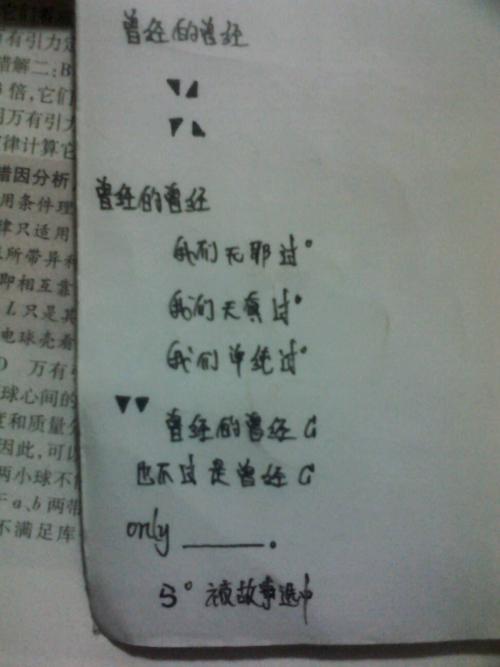 曾经的曾经
曾经的曾经
我们无邪过°
我们天真过°
我们单纯过°
曾经的曾经 G
也不过是曾经 G
only ______.
5° 被故事选中
它们
万有引力定
错解二:B
倍,它们
用万有引力
律计算它
错因分析
用条件理
律只适用
所带异种
即相互靠
L只是其
电球壳看
万有引
球心间的
度和质量分
因此,可以
两小球不
于a、b两带
不满足库